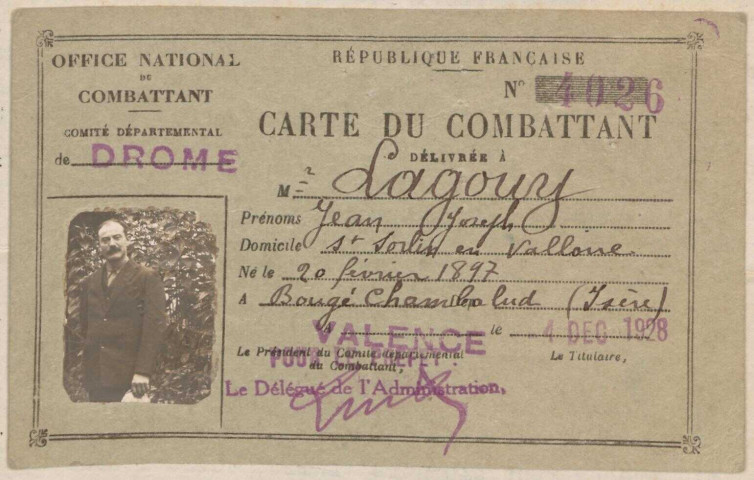 OFFICE NATIONAL
DU
COMBATTANT
COMITÉ DÉPARTEMENTAL
de DROME
RÉPUBLIQUE FRANÇAISE
N° 4026
CARTE DU COMBATTANT
DÉLIVRÉE À
M r Lagouy
Prénoms Jean Joseph
Domicile St Sorlin en Valloire
Né le 20 février 1897
A Bougé Chambalud (Isère)
VALENCE le 4 DEC 1928
Le Président du Comité départemental
du Combattant,
POUR
Le Titulaire,
Le Délégué de l'Administration,